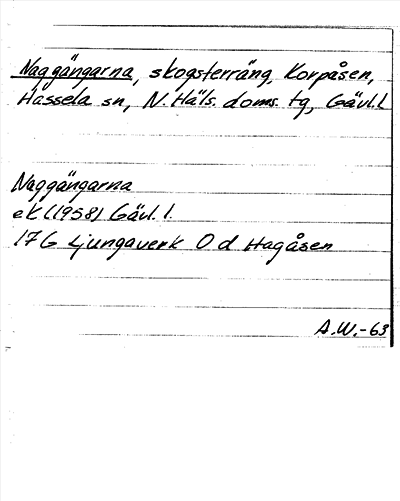 Naggängarna, skogsterräng, Korpåsen,
Hassela sn, N. Häls. doms. tg, Gävl.l
Naggängarna
ek (1958) Gävl. l.
17G Ljungaverk O d Hagåsen
A.W.-63